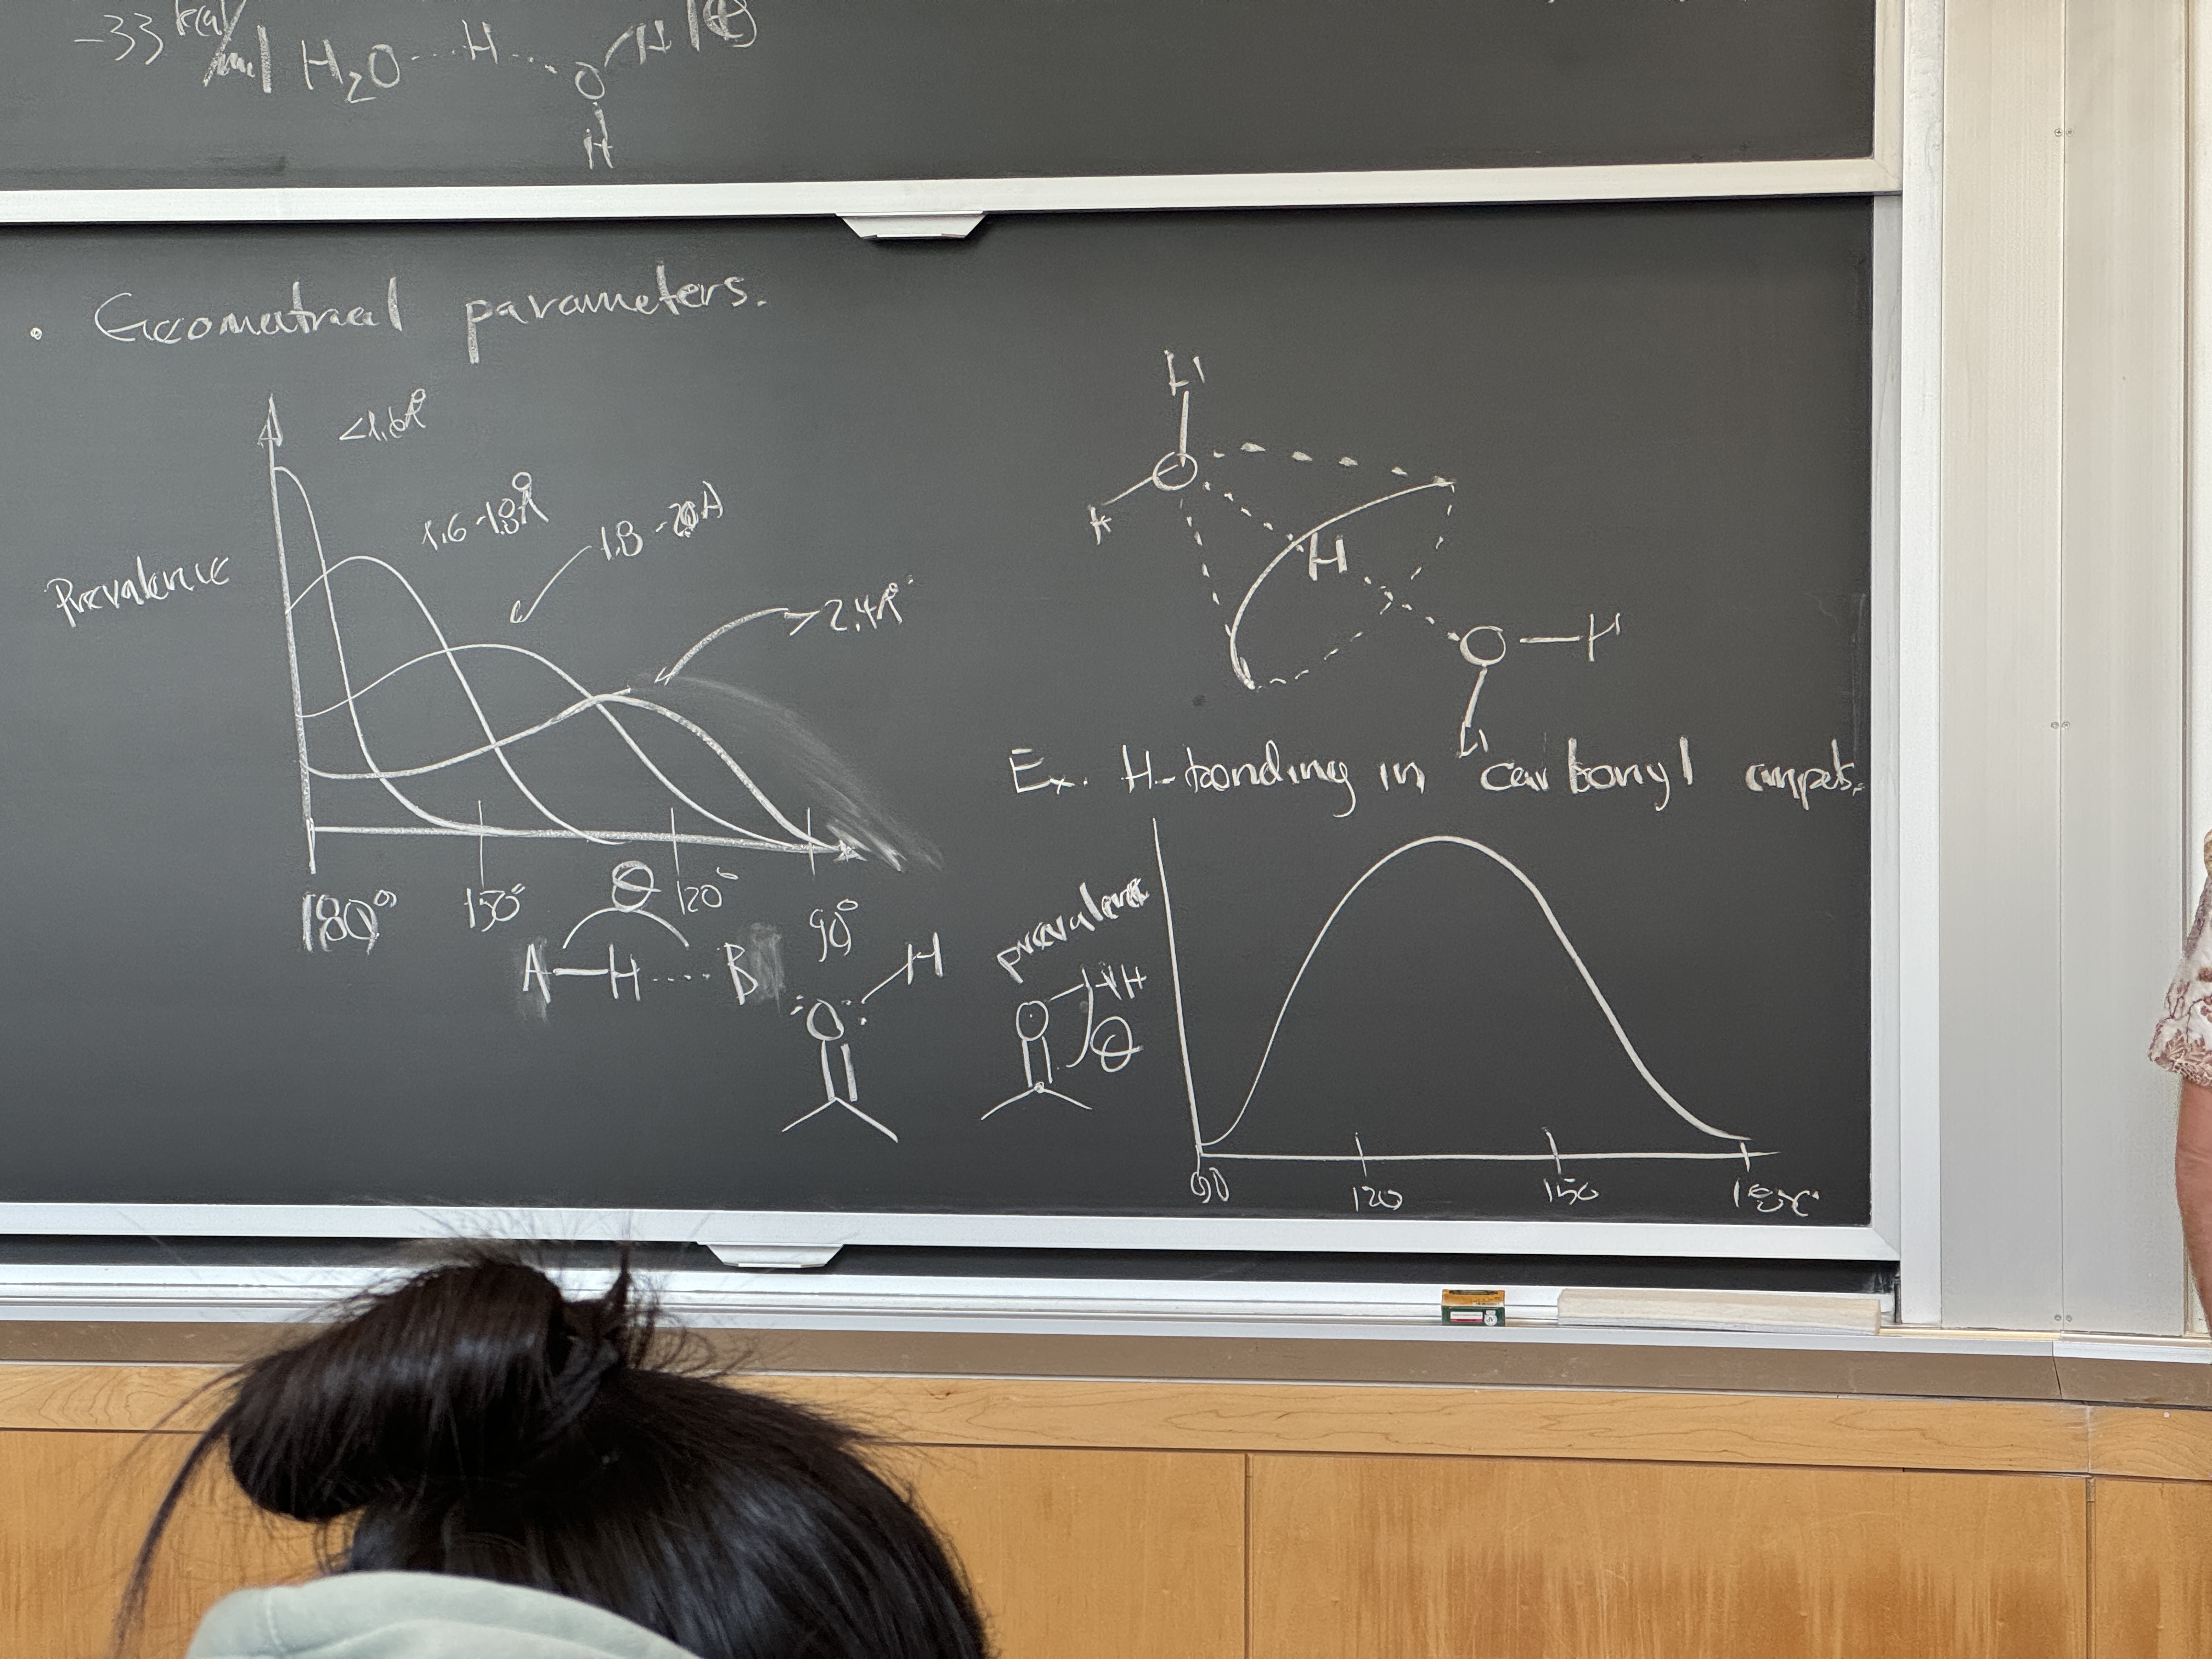 -33 kcal/mol H2O H O H ⊕
H
• Geometrical parameters.
<1.6Å
1.6-1.8Å
1.8-2.0Å
>2.4Å
Prevalence
180° 150° 120° 90°
θ
A—H....B
O H
H
O
H
H
O—H
H
Ex. H-bonding in carbonyl cmpds.
prevalence
O H
θ
90 120 150 180°